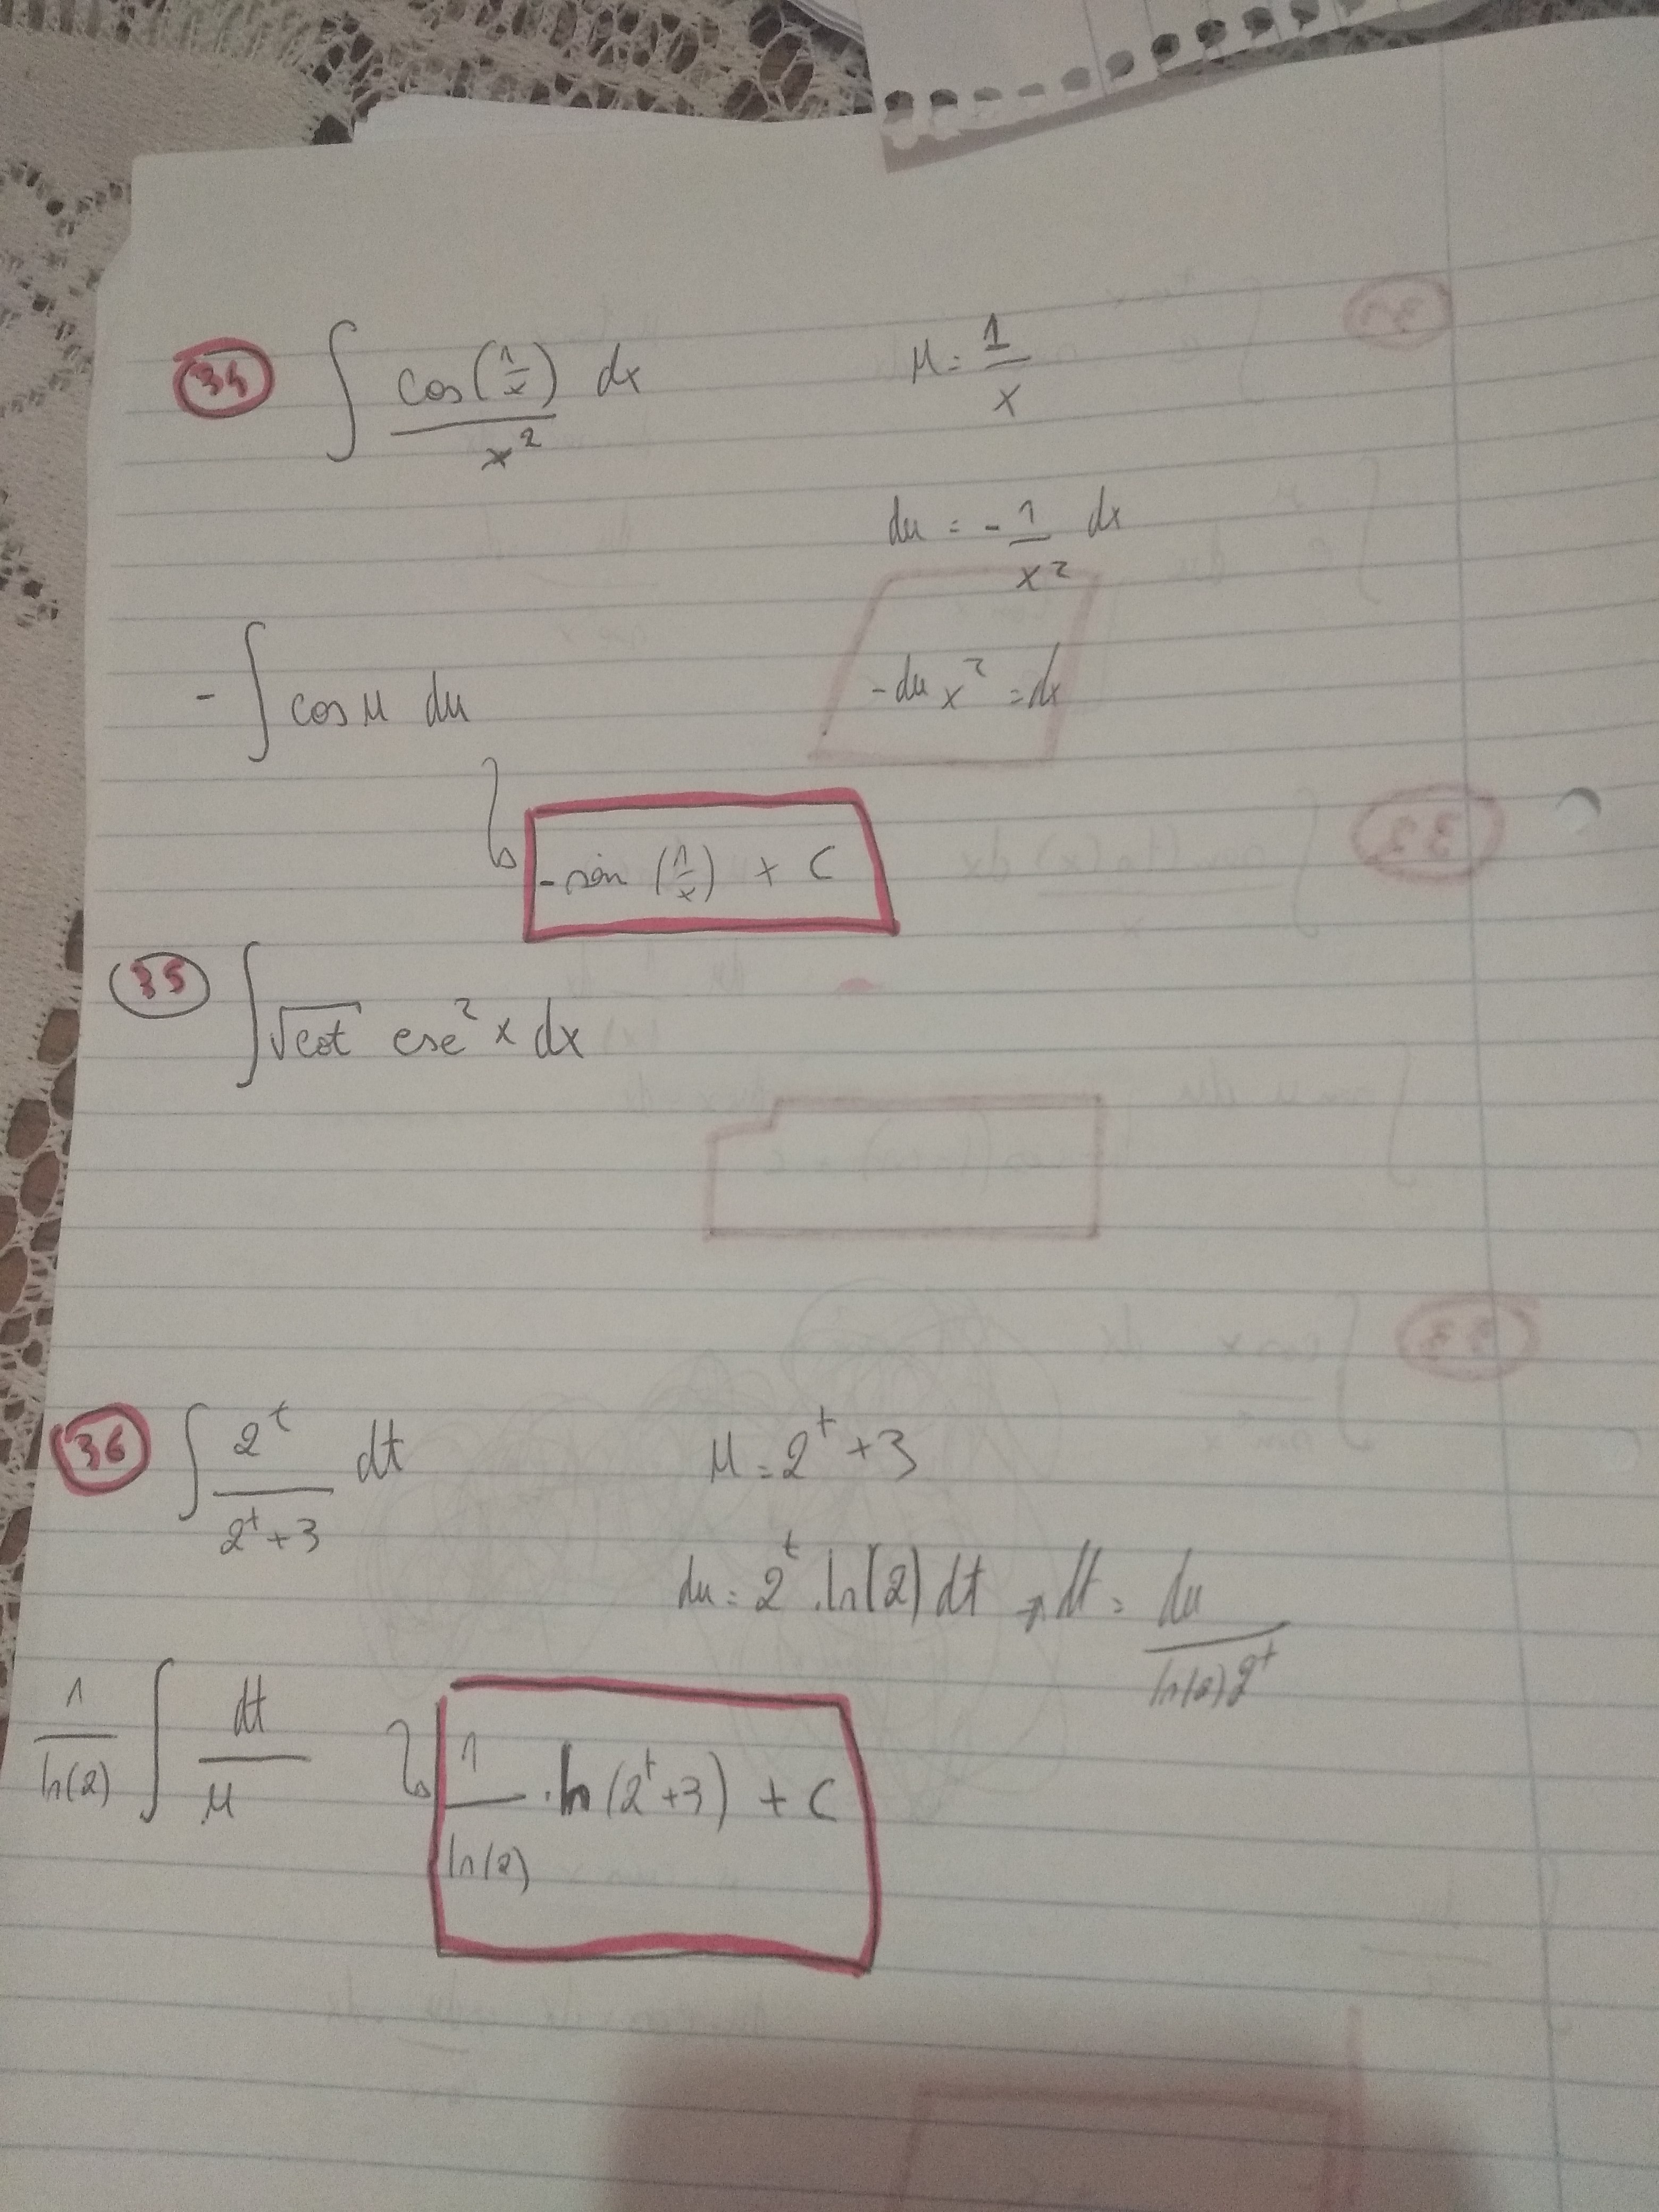 34 ∫ cos(1/x)/x² dx u = 1/x
du = -1/x² dx
- ∫ cos u du -du x² = dx
-sin (1/x) + C
35 ∫ √cot csc² x dx
36 ∫ 2^t/(2^t+3) dt u = 2^t + 3
du = 2^t . ln(2) dt → dt = du/(ln(2) 2^t)
1/ln(2) ∫ dt/u 1/ln(2) . ln (2^t+3) + C